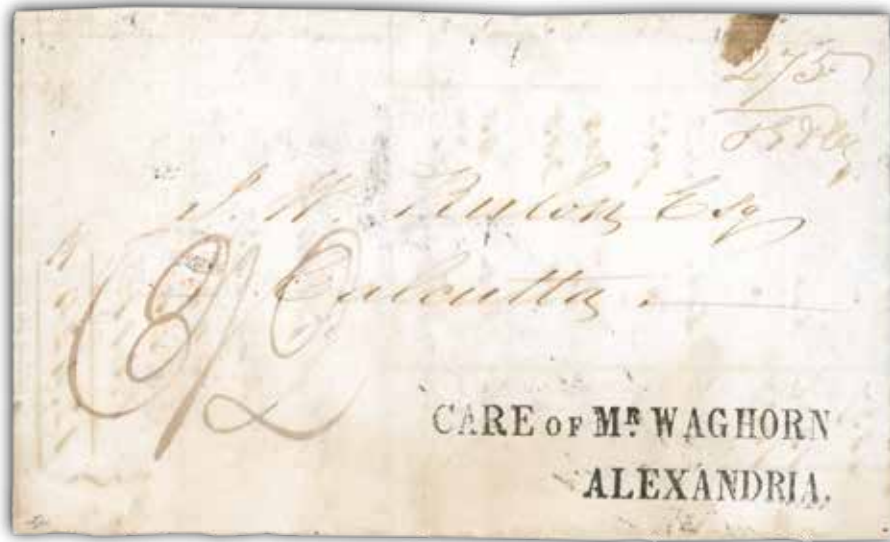 275
J. W. Rulon Esq
Calcutta.
CARE OF MR WAGHORN
ALEXANDRIA.